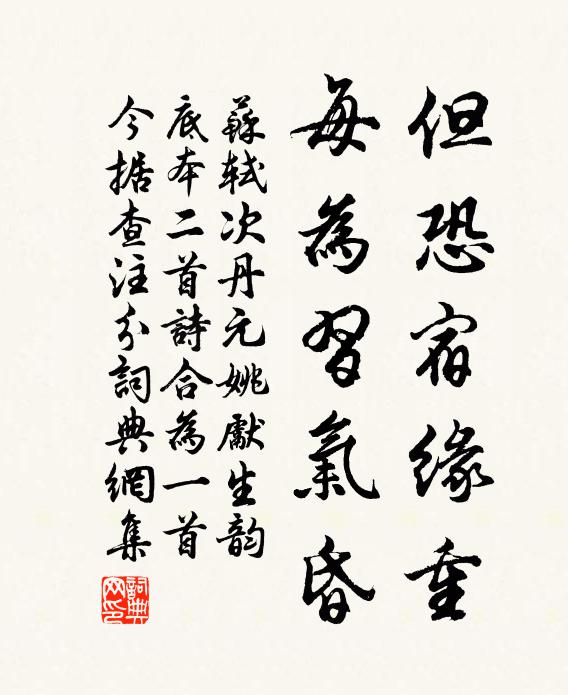 但恐宿緣重
每為習氣昏
蘇軾次丹元姚獻生韵
底本二首詩合為一首
今据查注分詞典網集
詞典網印